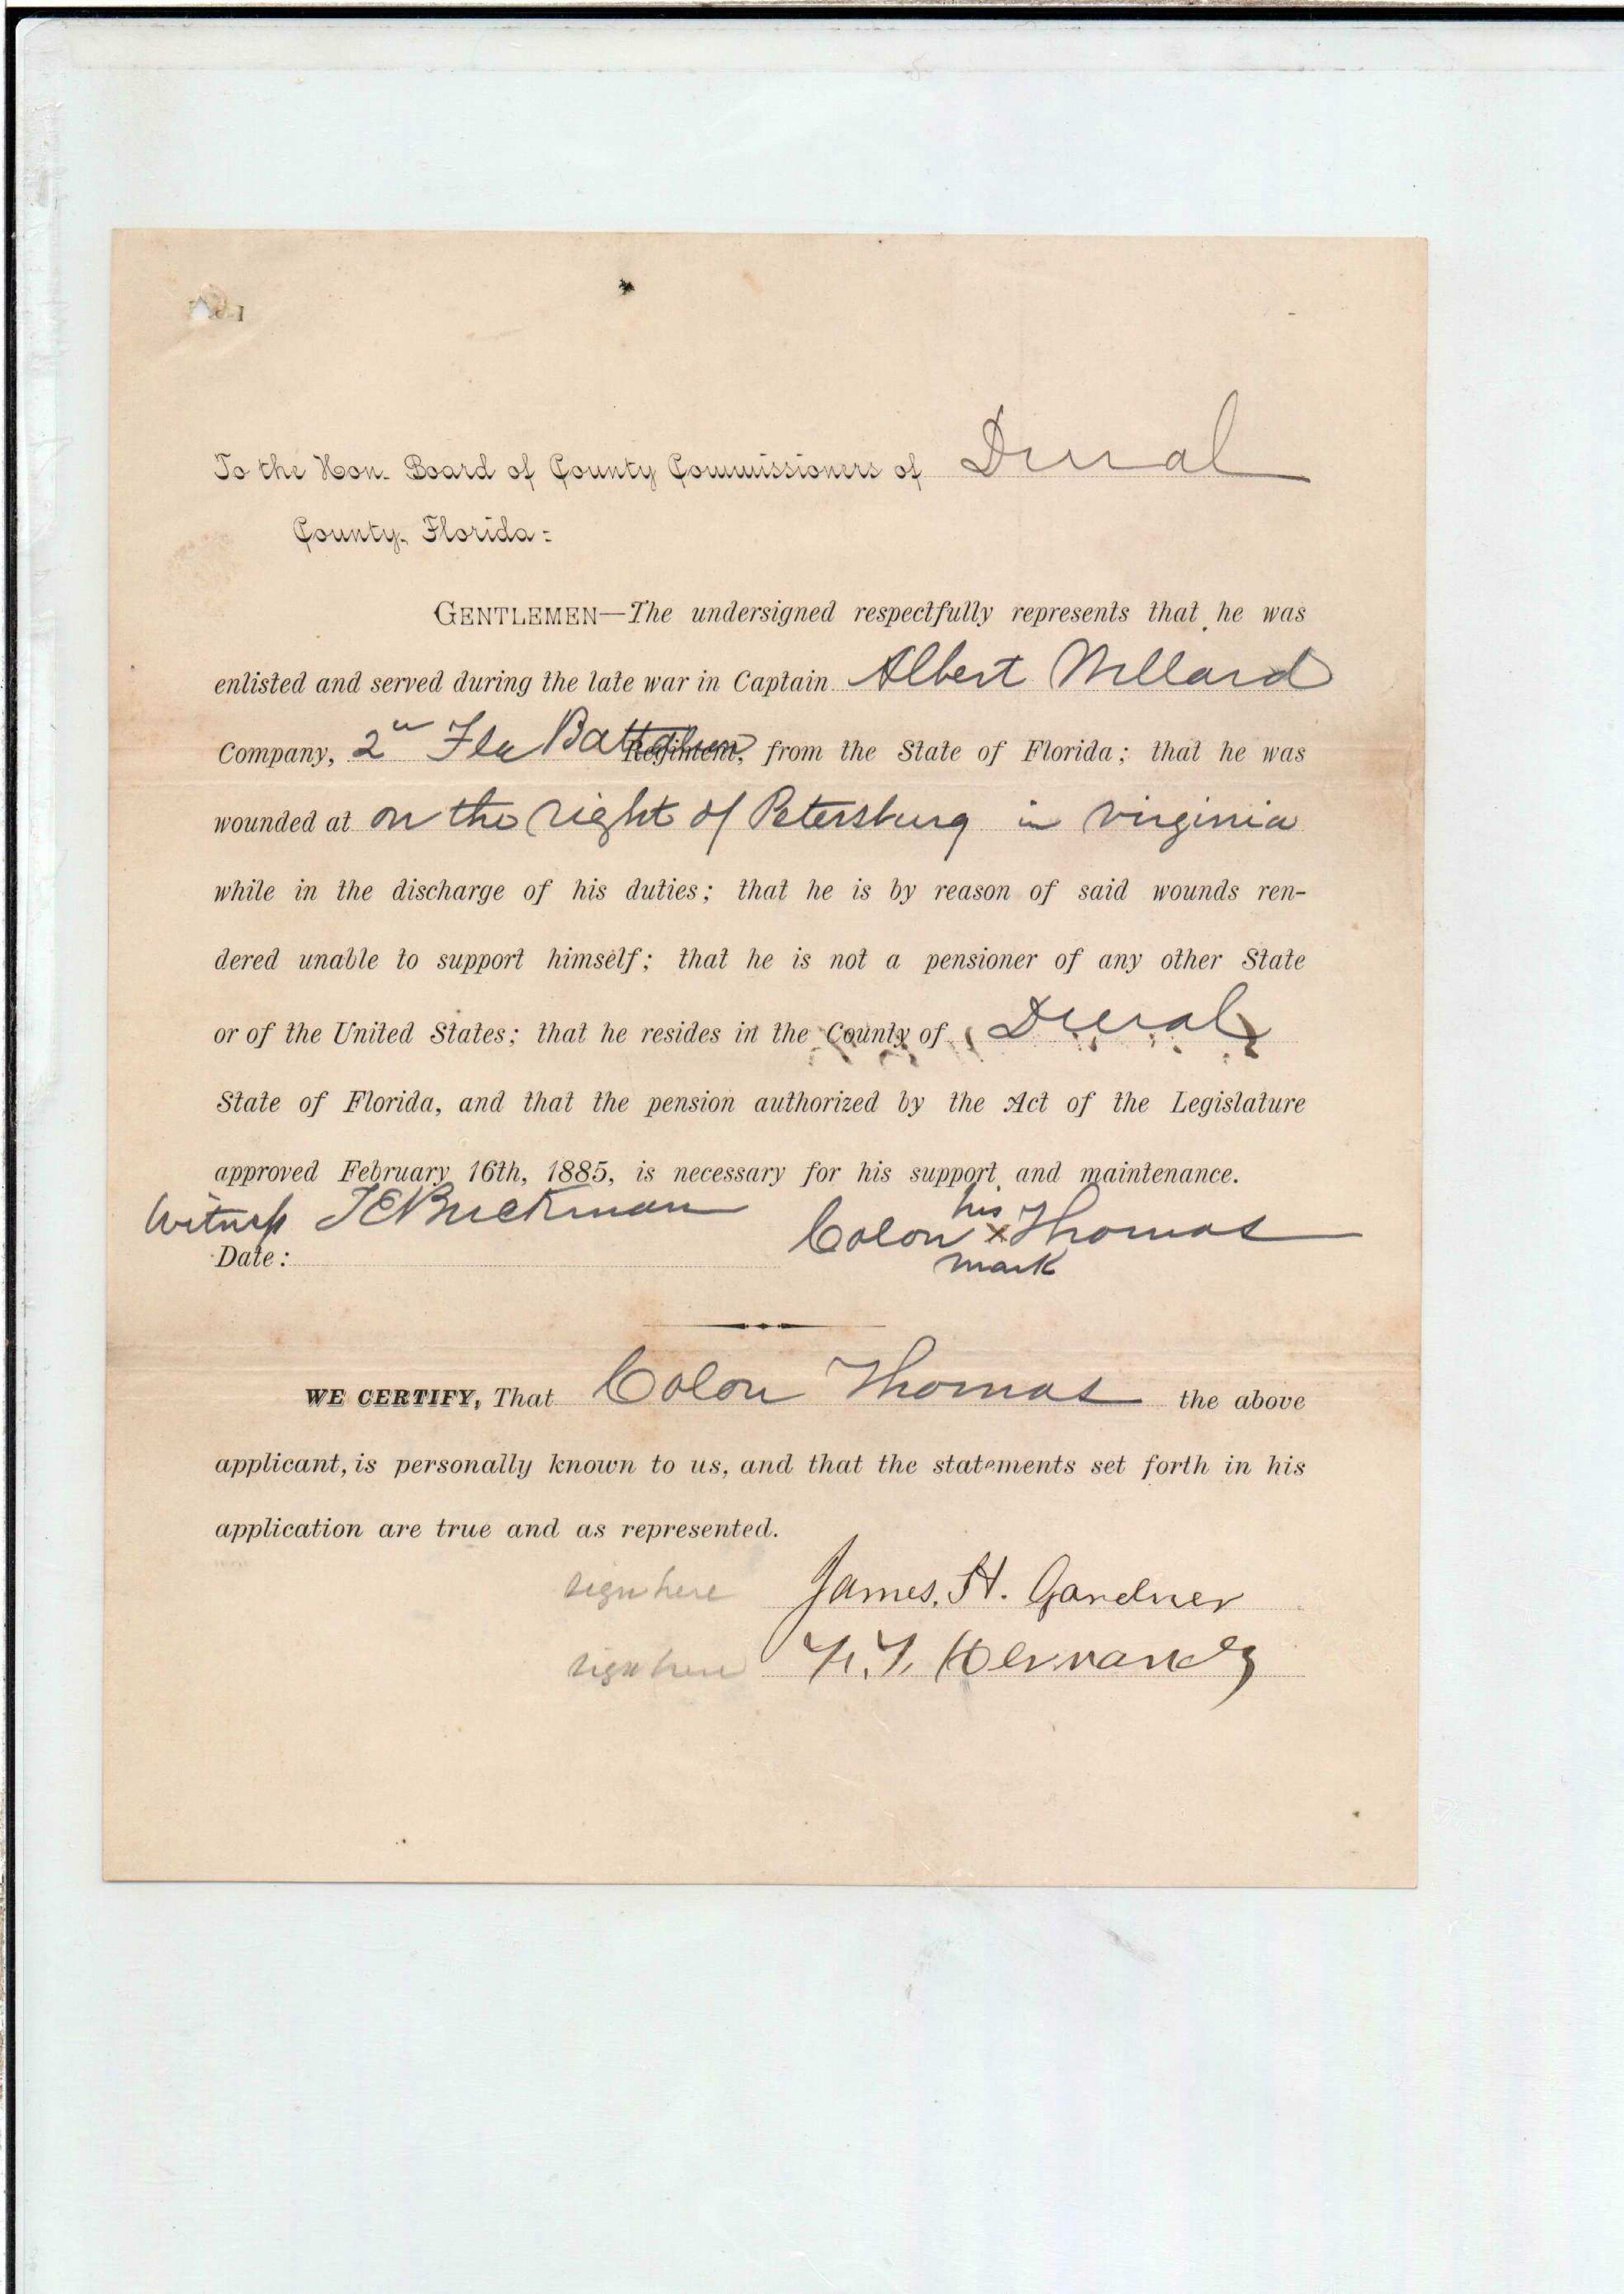 To the Hon. Board of County Commissioners of Duval
County, Florida:
GENTLEMEN—The undersigned respectfully represents that he was
enlisted and served during the late war in Captain Albert Millard
Company, 2" Fla Battalion Regiment, from the State of Florida; that he was
wounded at on the right of Petersburg in Virginia
while in the discharge of his duties; that he is by reason of said wounds ren-
dered unable to support himself; that he is not a pensioner of any other State
or of the United States; that he resides in the County of Duval
State of Florida, and that the pension authorized by the Act of the Legislature
approved February 16th, 1885, is necessary for his support and maintenance.
Witness T E Buckman
his
Colon x Thomas
mark
Date:
WE CERTIFY, That Colon Thomas the above
applicant, is personally known to us, and that the statements set forth in his
application are true and as represented.
sign here James. H. Gardner
sign here Hernandez